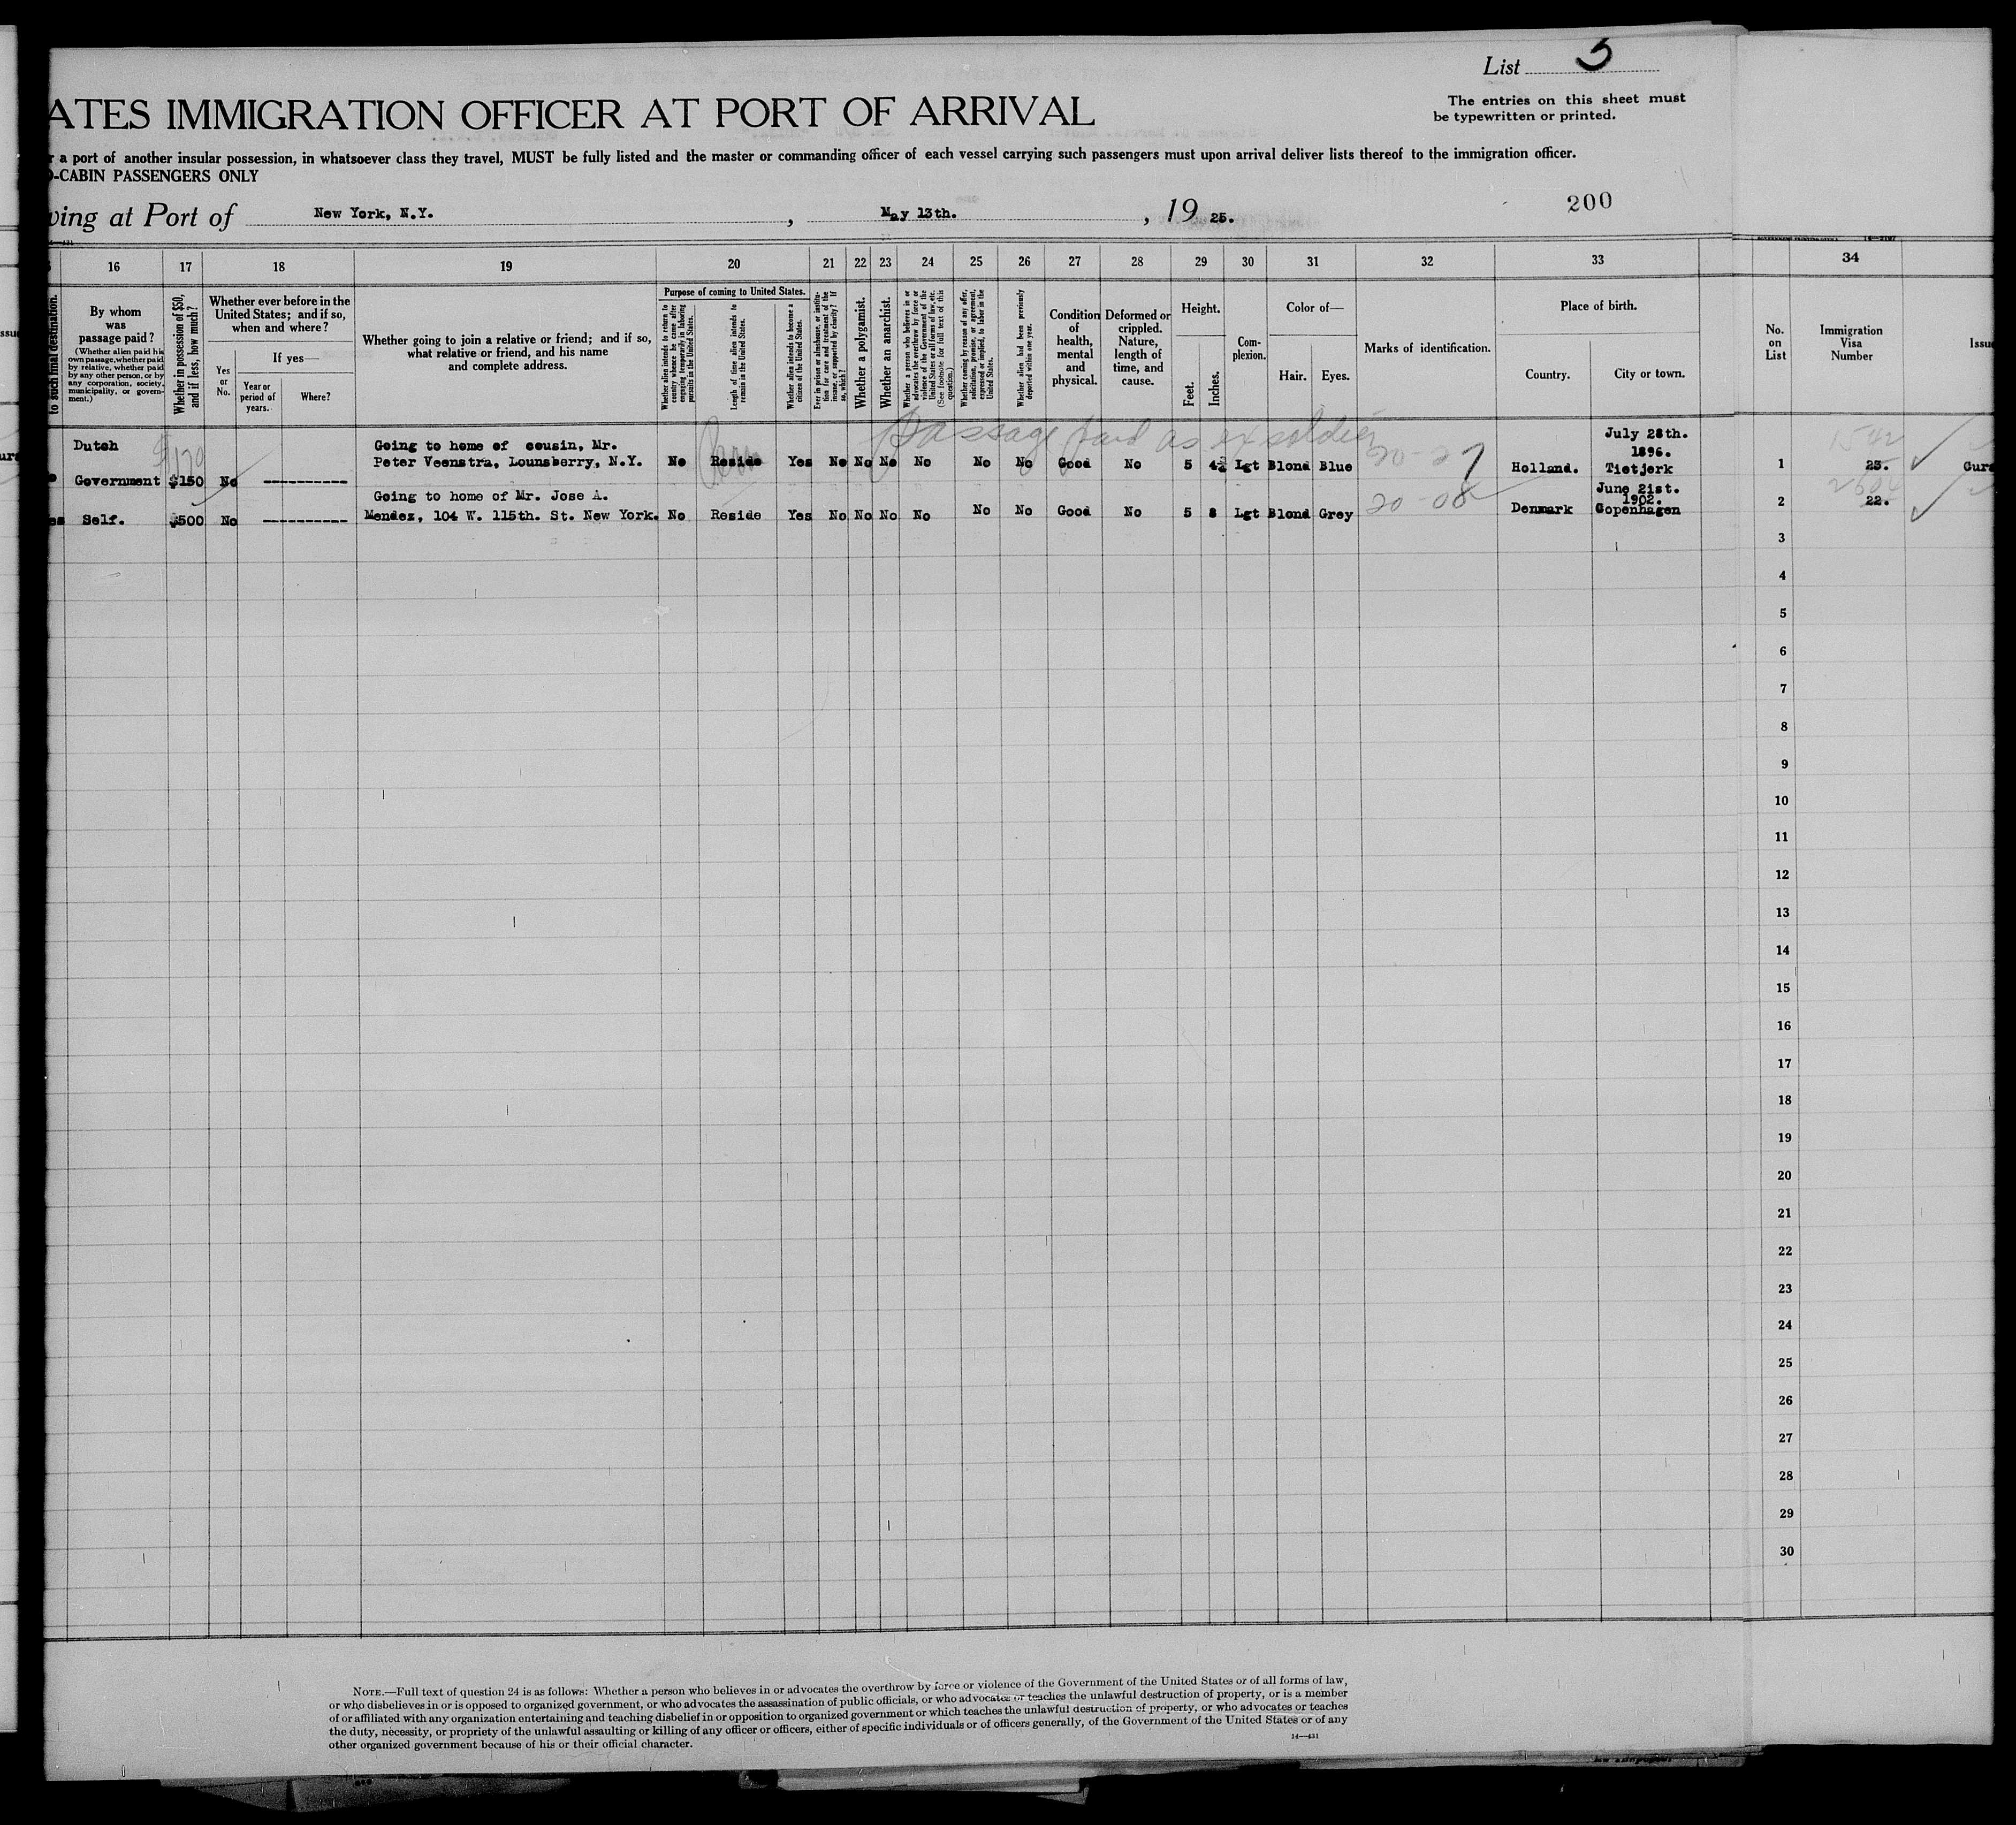 List 5
The entries on this sheet must
be typewritten or printed.
ATES IMMIGRATION OFFICER AT PORT OF ARRIVAL
r a port of another insular possession, in whatsoever class they travel, MUST be fully listed and the master or commanding officer of each vessel carrying such passengers must upon arrival deliver lists thereof to the immigration officer.
D-CABIN PASSENGERS ONLY
ving at Port of New York, N.Y., May 13th., 19 25.
200
16 17 18 19 20 21 22 23 24 25 26 27 28 29 30 31 32 33 34
to such final destination.
By whom
was
passage paid?
(Whether alien paid his
own passage, whether paid
by relative, whether paid
by any other person, or by
any corporation, society,
municipality, or govern-
ment.)
Whether in possession of $50,
and if less, how much?
Whether ever before in the
United States; and if so,
when and where?
Yes
or
No.
If yes—
Year or
period of
years.
Where?
Whether going to join a relative or friend; and if so,
what relative or friend, and his name
and complete address.
Purpose of coming to United States.
Whether alien intends to return to
country whence he came after
engaging temporarily in laboring
pursuits in the United States.
Length of time alien intends to
remain in the United States.
Whether alien intends to become a
citizen of the United States.
Ever in prison or almshouse, or institu-
tion for care and treatment of the
insane, or supported by charity? If
so, which?
Whether a polygamist.
Whether an anarchist.
Whether a person who believes in or
advocates the overthrow by force or
violence of the Government of the
United States or all forms of law, etc.
(See footnote for full text of this
question.)
Whether coming by reason of any offer,
solicitation, promise, or agreement,
expressed or implied, to labor in the
United States.
Whether alien had been previously
deported within one year.
Condition
of
health,
mental
and
physical.
Deformed or
crippled.
Nature,
length of
time, and
cause.
Height.
Feet.
Inches.
Com-
plexion.
Color of—
Hair. Eyes.
Marks of identification.
Place of birth.
Country. City or town.
No.
on
List
Immigration
Visa
Number
Issue
passage paid as ex soldier
Dutch
Going to home of cousin, Mr.
July 28th.
1896.
Government $150 No ---------- Peter Veenstra, Lounsberry, N.Y. No Reside Yes No No No No No No Good No 5 4½ Lgt Blond Blue Holland. Tietjerk 1 23.
Going to home of Mr. Jose A.
June 21st.
1902.
Self. $500 No ---------- Mendez, 104 W. 115th. St. New York. No Reside Yes No No No No No No Good No 5 8 Lgt Blond Grey 20-08 Denmark Copenhagen 2 22.
3
4
5
6
7
8
9
10
11
12
13
14
15
16
17
18
19
20
21
22
23
24
25
26
27
28
29
30
NOTE.—Full text of question 24 is as follows: Whether a person who believes in or advocates the overthrow by force or violence of the Government of the United States or of all forms of law,
or who disbelieves in or is opposed to organized government, or who advocates the assassination of public officials, or who advocates or teaches the unlawful destruction of property, or is a member
of or affiliated with any organization entertaining and teaching disbelief in or opposition to organized government or which teaches the unlawful destruction of property, or who advocates or teaches
the duty, necessity, or propriety of the unlawful assaulting or killing of any officer or officers, either of specific individuals or of officers generally, of the Government of the United States or of any
other organized government because of his or their official character.
14—431